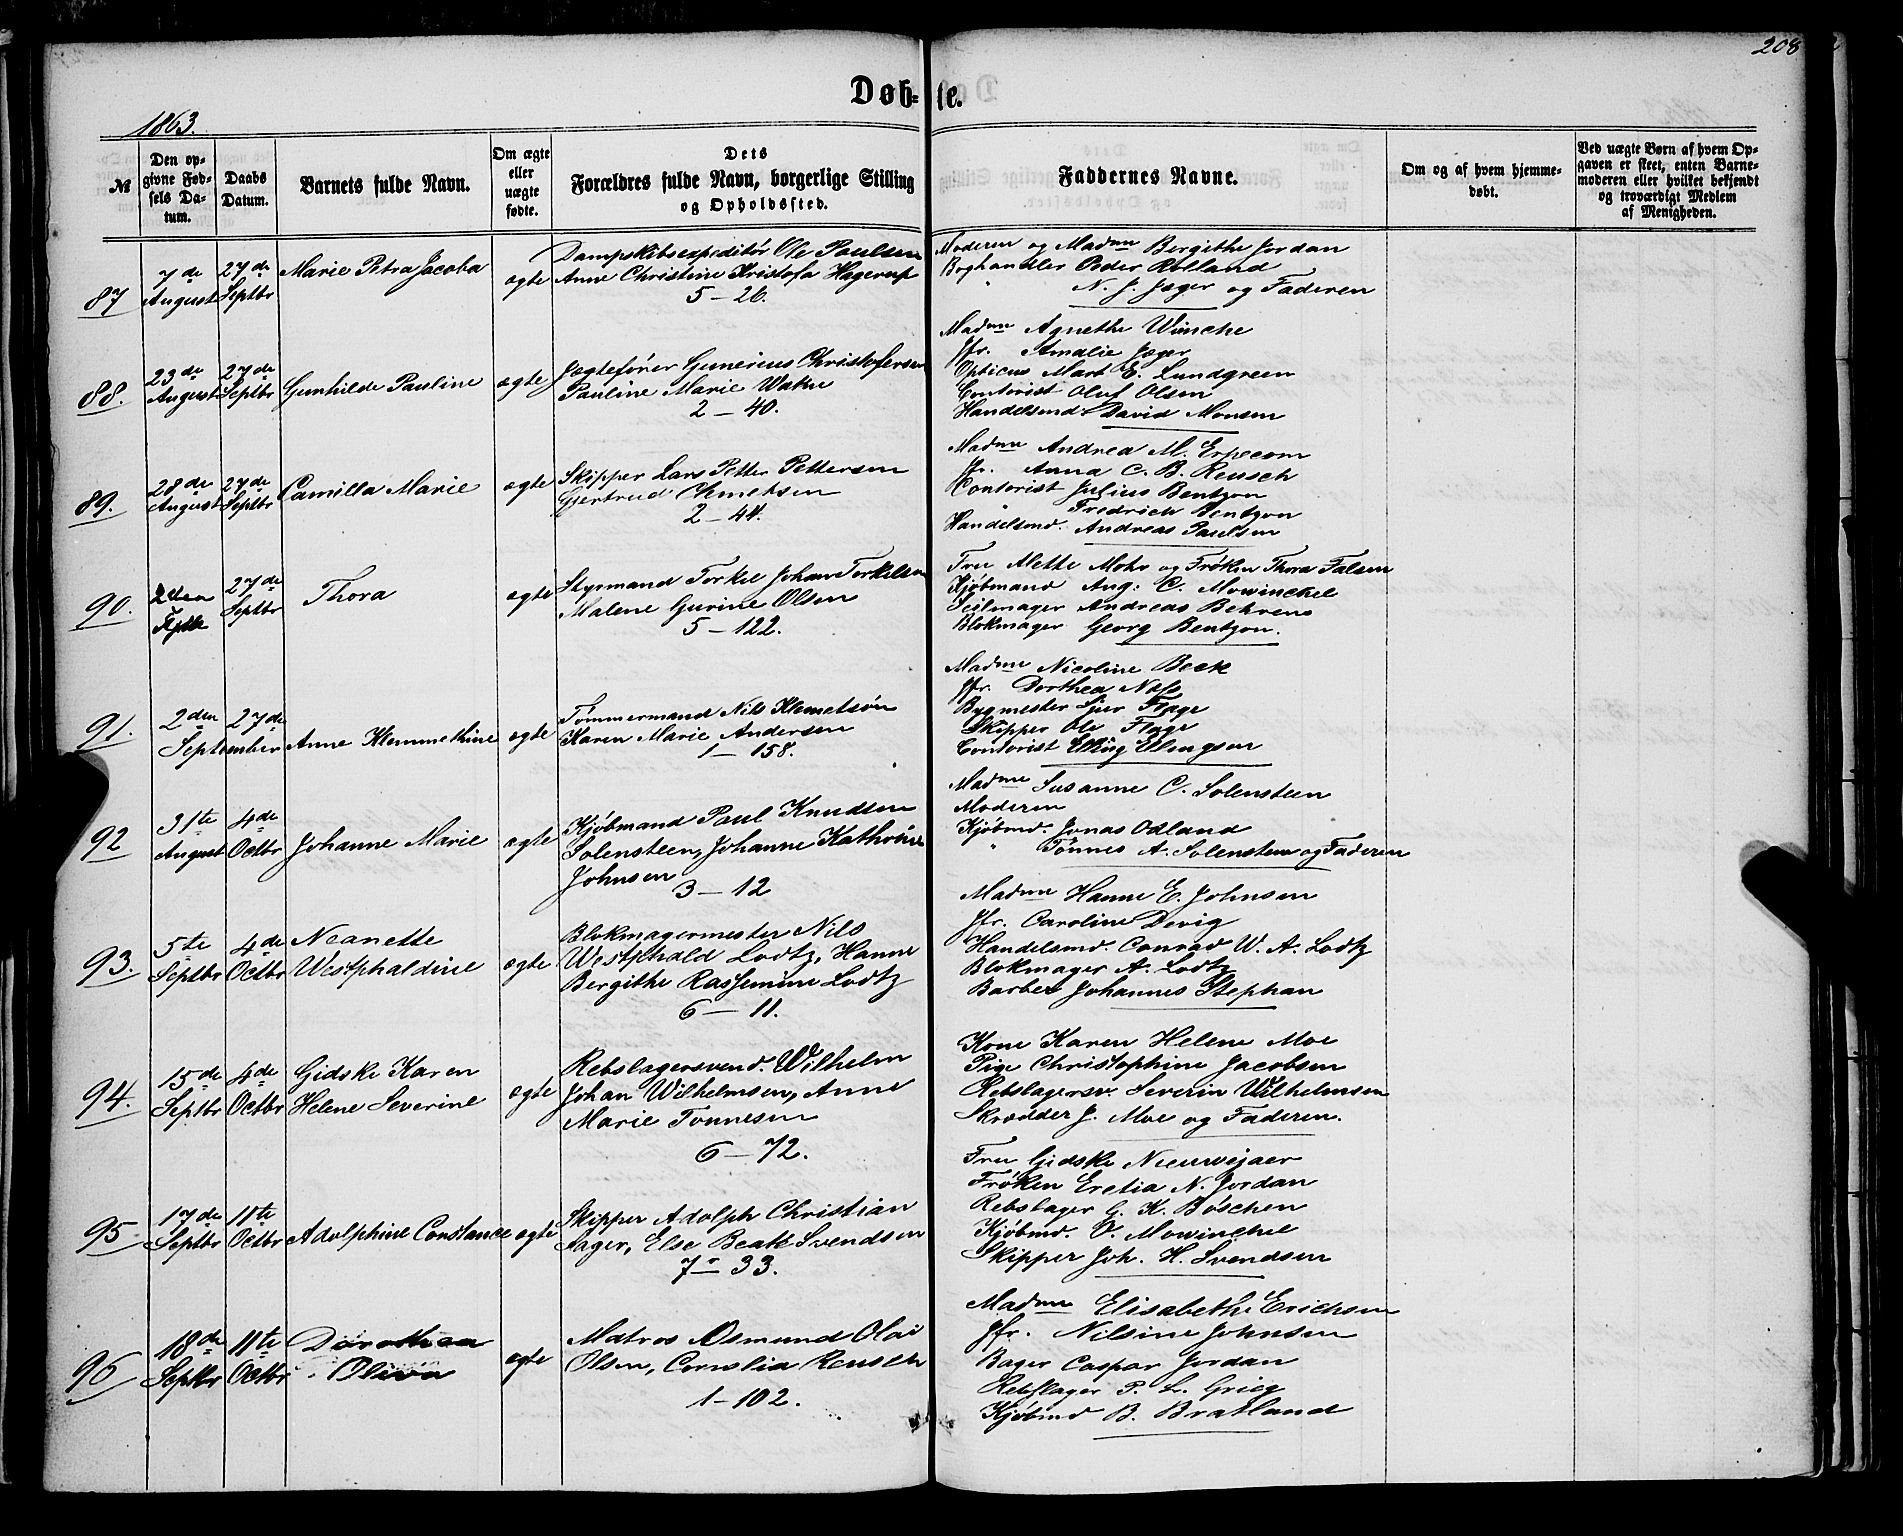 208
Døb-te.
1863.
№
Den opgivne Fødsels Datum.
Daabs Datum.
Barnets fulde Navn.
Om ægte eller uægte fødte.
Dets Forældres fulde Navn, borgerlige Stilling og Opholdssted.
Faddernes Navne.
Om og af hvem hjemmedøbt.
Ved uægte Børn af hvem Opgaven er skeet, enten Barnemoderen eller hvilket bekjendt og troværdigt Medlem af Menigheden.
87
7de August
27de Septbr
Marie Petra Jacoba
ægte
Dampskibsexpeditør Ole Paulsen
Anne Christine Kristofa Hagerup
5 – 26.
Moderen og Madme Bergithe Jordan
Boghandler Peder Rolland
" N. J. Jæger og Faderen
88.
23de August
27de Septbr
Gunhilde Pauline
ægte
Jægtefører Gunerius Christofersen
Pauline Marie
2 – 40.
Madme Agnethe Wincke
Jfr. Amalie Jæger
Opticus Mart. E. Lundgreen
Contorist Oluf Olsen
Handelsmd David Monsen
89.
28de August
27de Septbr
Camilla Marie
ægte
Skipper Lars Petter Pettersen
Gjertrud
2 – 44.
Madme Andrea M. Erpecom
Jfr. Anna C. B. Reusch
Contorist Julius Bentzon
" Fredrich Bentzon
Handelsmd. Andreas Paulsen
90.
2den Septbr
27de Septbr
Thora
ægte
Styrmand Torkel Johan Torkilsen
Malene Gurine Olsen
5 – 122.
Fru Alette Mohr og Frøken Thora Falsen
Kjøbmand Aug: C. Mowinckel
Seilmager Andreas Behrens
Blokmager Georg Bentzon.
91.
2den 27de
September
Anne Klemmethine
ægte
Tømmermand Nils Klemetsøn
Karen Marie Andersen
1 – 158.
Madme Nicoline Beck
Jfr. Dorthea
Bygmester Sjur Fløge
Skipper Ole Fløge
Contorist Elling Ellingsen
92
31te August
4de Octbr
Johanne Marie
ægte
Kjøbmand Paul Knudsen
Solensteen, Johanne Kathrine
Johnsen
3 – 12
Madme Susanne C. Solensteen
Moderen
Kjøbmd. Jonas Odland
" Tønnes A. Solensteen og Faderen
93.
5te Septbr
4de Octbr
Neanette
Westphaldine
ægte
Blokmagermester Nils
Westphald Lodtz, Hanne
Bergithe Rassemine Lodtz
6 – 11.
Madme Hanne E. Johnsen
Jfr. Caroline Devig
Handelsmd. Conrad W. A. Lodtz
Blokmager A. Lodtz
Barber Johannes Stephan
94.
15de Septbr
4de Octbr
Gidske Karen
Helene Severine
ægte
Rebslagersvend. Wilhelm
Johan Wilhelmsen, Anne
Marie Tønnesen
6 – 72.
Kone Karen Helene Moe
Pige Christophine Jacobsen
Rebslagersv. Severin Wilhelmsen
Skrædder J. Moe og Faderen.
95
17de Septbr
11te Octbr
Adolphine Constance
ægte
Skipper Adolph Christian
Sager, Else Beate Svendsen
7 – 33.
Fru Gidske Nieuwejaer
Frøken Eretia N. Jordan
Rebslager G. K. Bøschen
Kjøbmd. V. Mowinckel
Skipper Joh. H. Svendsen
96
18de Septbr
11te Octbr
Dorothea
Oliva
ægte
Matros Osmund Olai
Olsen, Cornelia Reusch
1 – 102.
Madme Elisabethe Erichsen
Jfr. Nilsine Johnsen
Bager Caspar Jordan
Rebslager P. L. Grieg
Kjøbmd B. Bratland